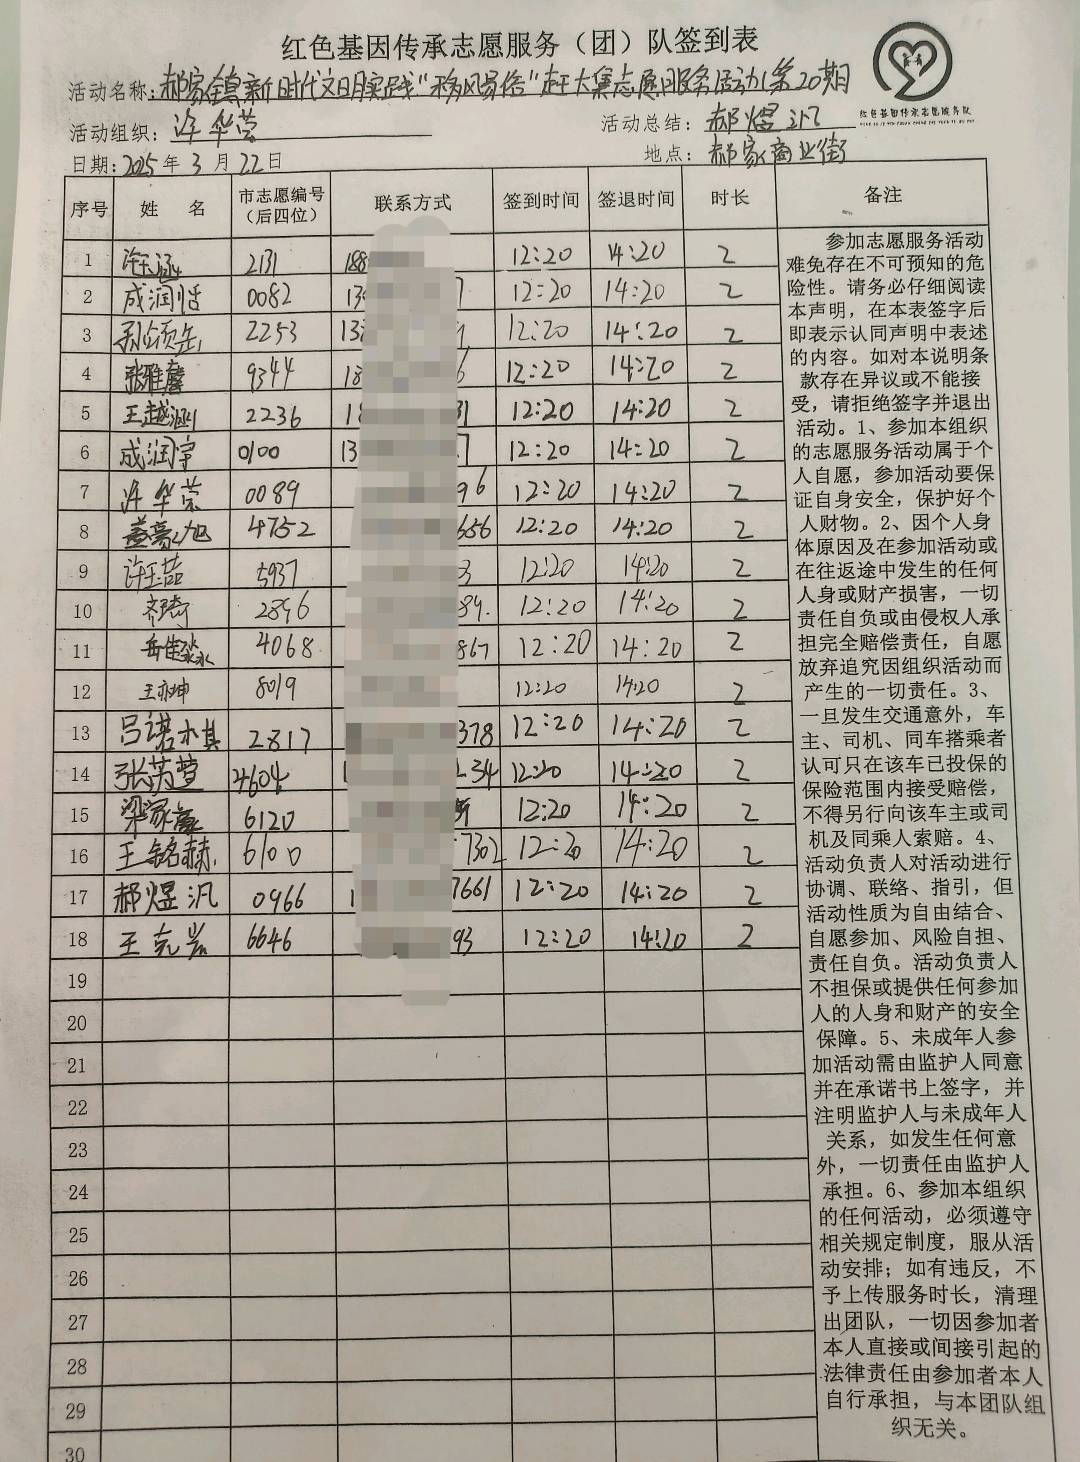 红色基因传承志愿服务（团）队签到表
红色基因传承志愿服务队
活动名称：郝家镇新时代文明实践“移风易俗”赶大集志愿服务活动(第20期
活动组织：许华荣 活动总结：郝煜汎
日期：2025年3月22日 地点：郝家商业街
序号 姓名 市志愿编号（后四位） 联系方式 签到时间 签退时间 时长 备注
1 2131 188 12:20 14:20 2
2 成润恬 0082 13 7 12:20 14:20 2
3 2253 13 12:20 14:20 2
4 张雅馨 9344 18 6 12:20 14:20 2
5 王越涵 2236 1 31 12:20 14:20 2
6 成润宇 0100 13 7 12:20 14:20 2
7 许华荣 0089 96 12:20 14:20 2
8 4752 656 12:20 14:20 2
9 许玉喆 5937 3 12:20 14:20 2
10 齐琦 2896 89. 12:20 14:20 2
11 岳佳淼 4068 867 12:20 14:20 2
12 王亦坤 8019 12:20 14:20 2
13 吕诺亦其 2817 378 12:20 14:20 2
14 张芮萱 4604 1 34 12:20 14:20 2
15 梁家 6120 12:20 14:20 2
16 王铭赫 6100 7302 12:20 14:20 2
17 郝煜汎 0966 1 7661 12:20 14:20 2
18 王克岩 6646 93 12:20 14:20 2
19
20
21
22
23
24
25
26
27
28
29
30
参加志愿服务活动
难免存在不可预知的危
险性。请务必仔细阅读
本声明，在本表签字后
即表示认同声明中表述
的内容。如对本说明条
款存在异议或不能接
受，请拒绝签字并退出
活动。1、参加本组织
的志愿服务活动属于个
人自愿，参加活动要保
证自身安全，保护好个
人财物。2、因个人身
体原因及在参加活动或
在往返途中发生的任何
人身或财产损害，一切
责任自负或由侵权人承
担完全赔偿责任，自愿
放弃追究因组织活动而
产生的一切责任。3、
一旦发生交通意外，车
主、司机、同车搭乘者
认可只在该车已投保的
保险范围内接受赔偿，
不得另行向该车主或司
机及同乘人索赔。4、
活动负责人对活动进行
协调、联络、指引，但
活动性质为自由结合、
自愿参加、风险自担、
责任自负。活动负责人
不担保或提供任何参加
人的人身和财产的安全
保障。5、未成年人参
加活动需由监护人同意
并在承诺书上签字，并
注明监护人与未成年人
关系，如发生任何意
外，一切责任由监护人
承担。6、参加本组织
的任何活动，必须遵守
相关规定制度，服从活
动安排；如有违反，不
予上传服务时长，清理
出团队，一切因参加者
本人直接或间接引起的
法律责任由参加者本人
自行承担，与本团队组
织无关。